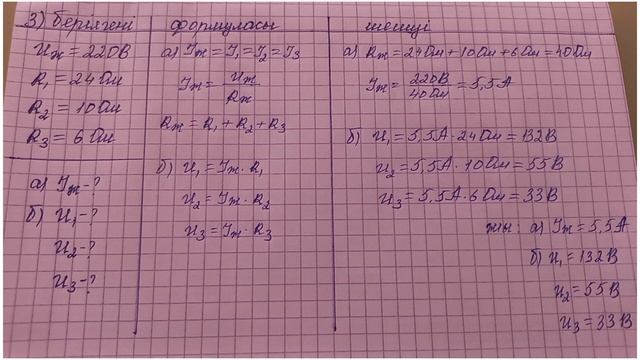 3) берілгені
Uж = 220В
R₁ = 24 Ом
R₂ = 10 Ом
R₃ = 6 Ом
а) Iж - ?
б) U₁ - ?
U₂ - ?
U₃ - ?
формуласы
а) Iж = I₁ = I₂ = I₃
Iж = Uж / Rж
Rж = R₁ + R₂ + R₃
б) U₁ = Iж · R₁
U₂ = Iж · R₂
U₃ = Iж · R₃
шешуі
а) Rж = 24 Ом + 10 Ом + 6 Ом = 40 Ом
Iж = 220В / 40 Ом = 5,5 А
б) U₁ = 5,5А · 24 Ом = 132В
U₂ = 5,5А · 10 Ом = 55В
U₃ = 5,5А · 6 Ом = 33В
жы: а) Iж = 5,5А
б) U₁ = 132В
U₂ = 55В
U₃ = 33В